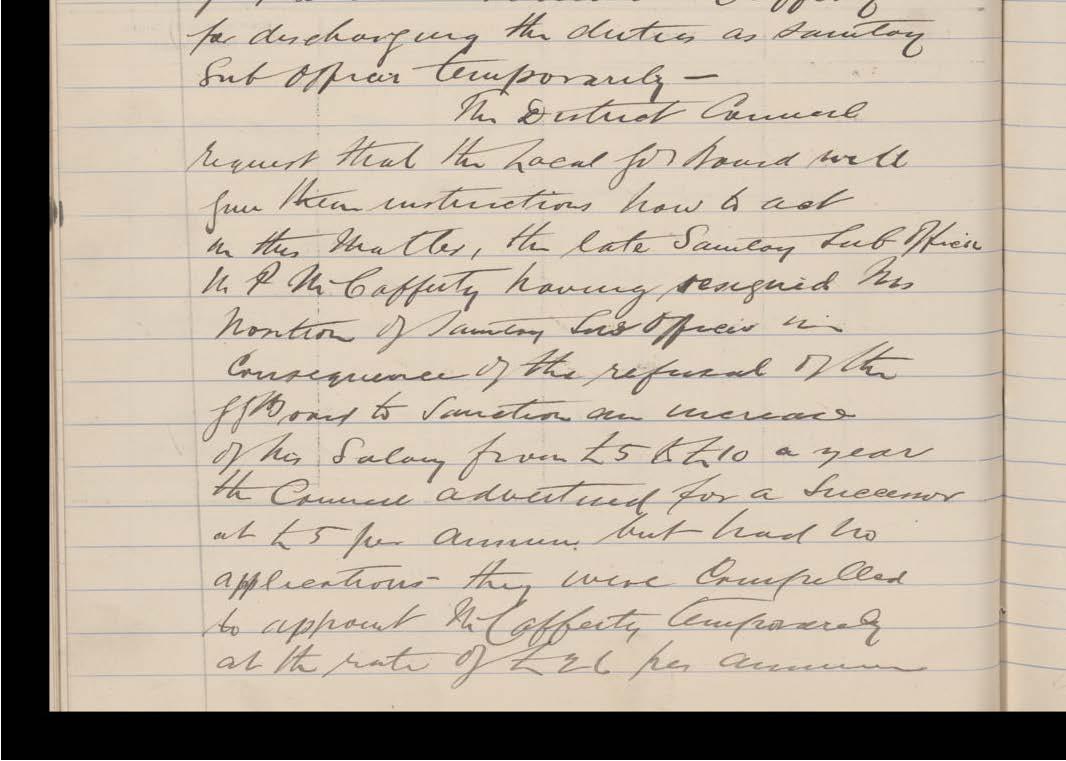 for discharging the duties as Sanitary
Sub Officer temporarily —
The District Council
request that the Local Gov Board will
give them instructions how to act
in this matter, the late Sanitary Sub Officer
Mr P McCafferty having resigned his
position of Sanitary Sub Officer in
Consequence of the refusal of the
LG Board to Sanction an increase
of his Salary from £5 to £10 a year
the Council advertised for a Successor
at £5 per annum but had no
applications they were Compelled
to appoint McCafferty temporarily
at the rate of £26 per annum